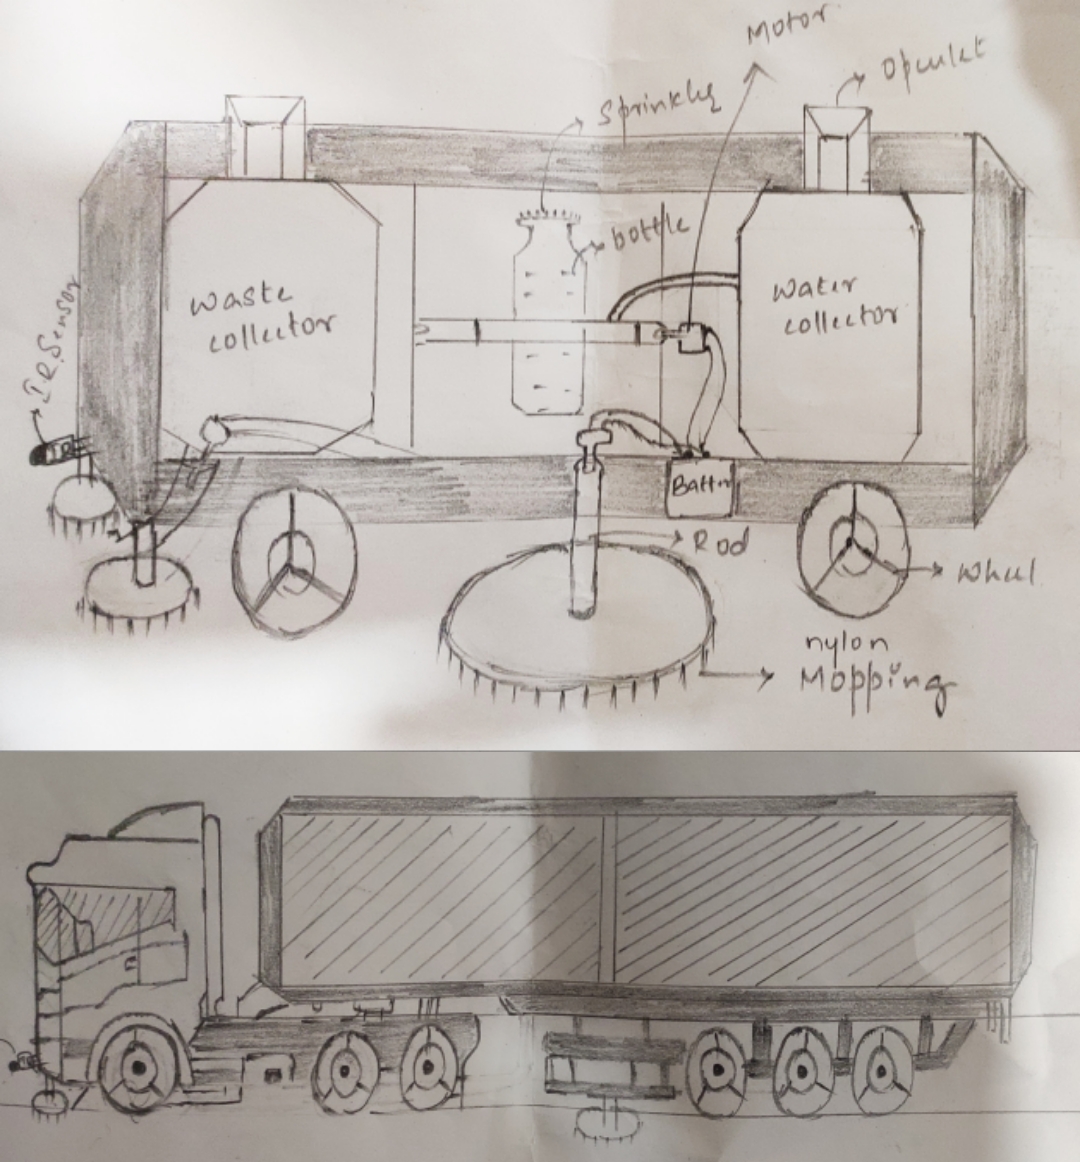 Motor
Openlet
Sprinkly
bottle
waste
collector
water
collector
I.R.Sensor
Batter
Rod
wheel
nylon
Mopping